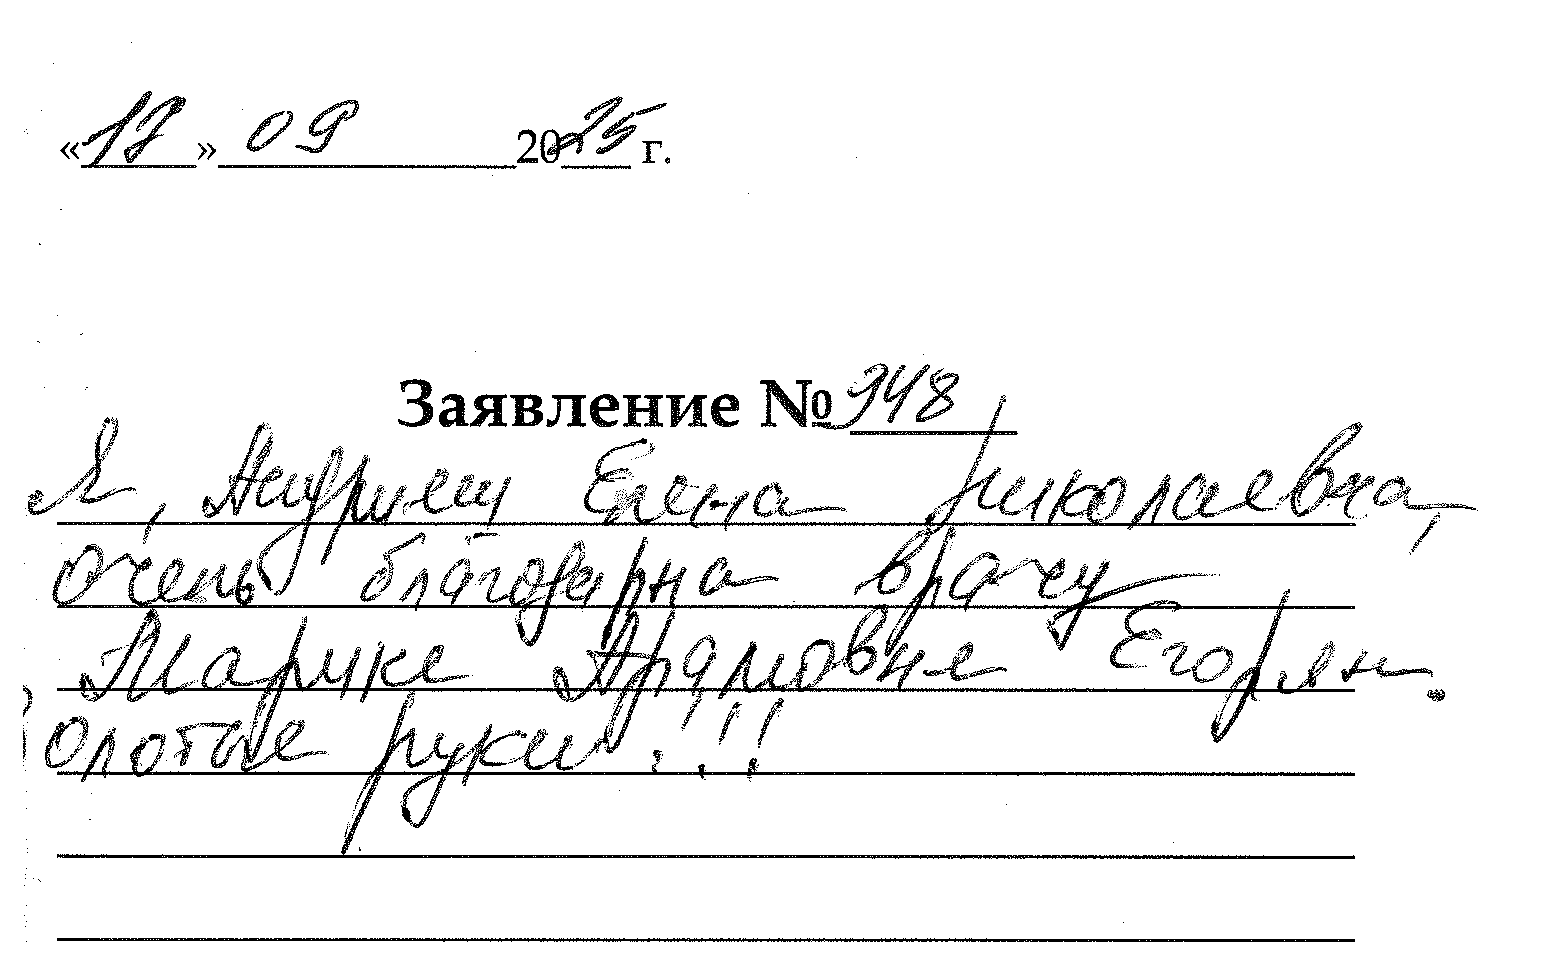 «17» 09 2025 г.
Заявление № 948
Я, Елена Николаевна,
очень благодарна врачу
Марике Арамовне Егорян.
олотые руки!!!